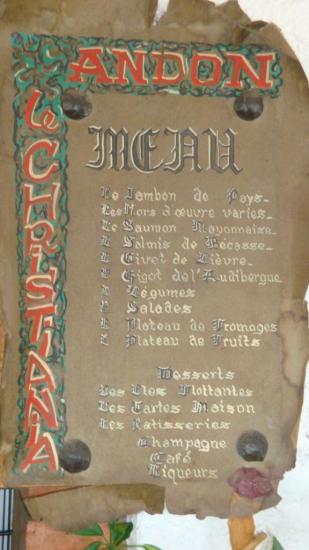 ANDON
Le CHRISTIANA
MENU
Le Jambon de Pays
Les Hors d'œuvre varies
Le Saumon Mayonnaise
Le Salmis de Bécasse
Le Civet de Lièvre
Le Gigot de l'Audibergue
Légumes
Salades
Le Plateau de Fromages
Le Plateau de Fruits
Desserts
Les Iles Flottantes
Les Tartes Maison
Les Patisseries
Champagne
Café
Liqueurs